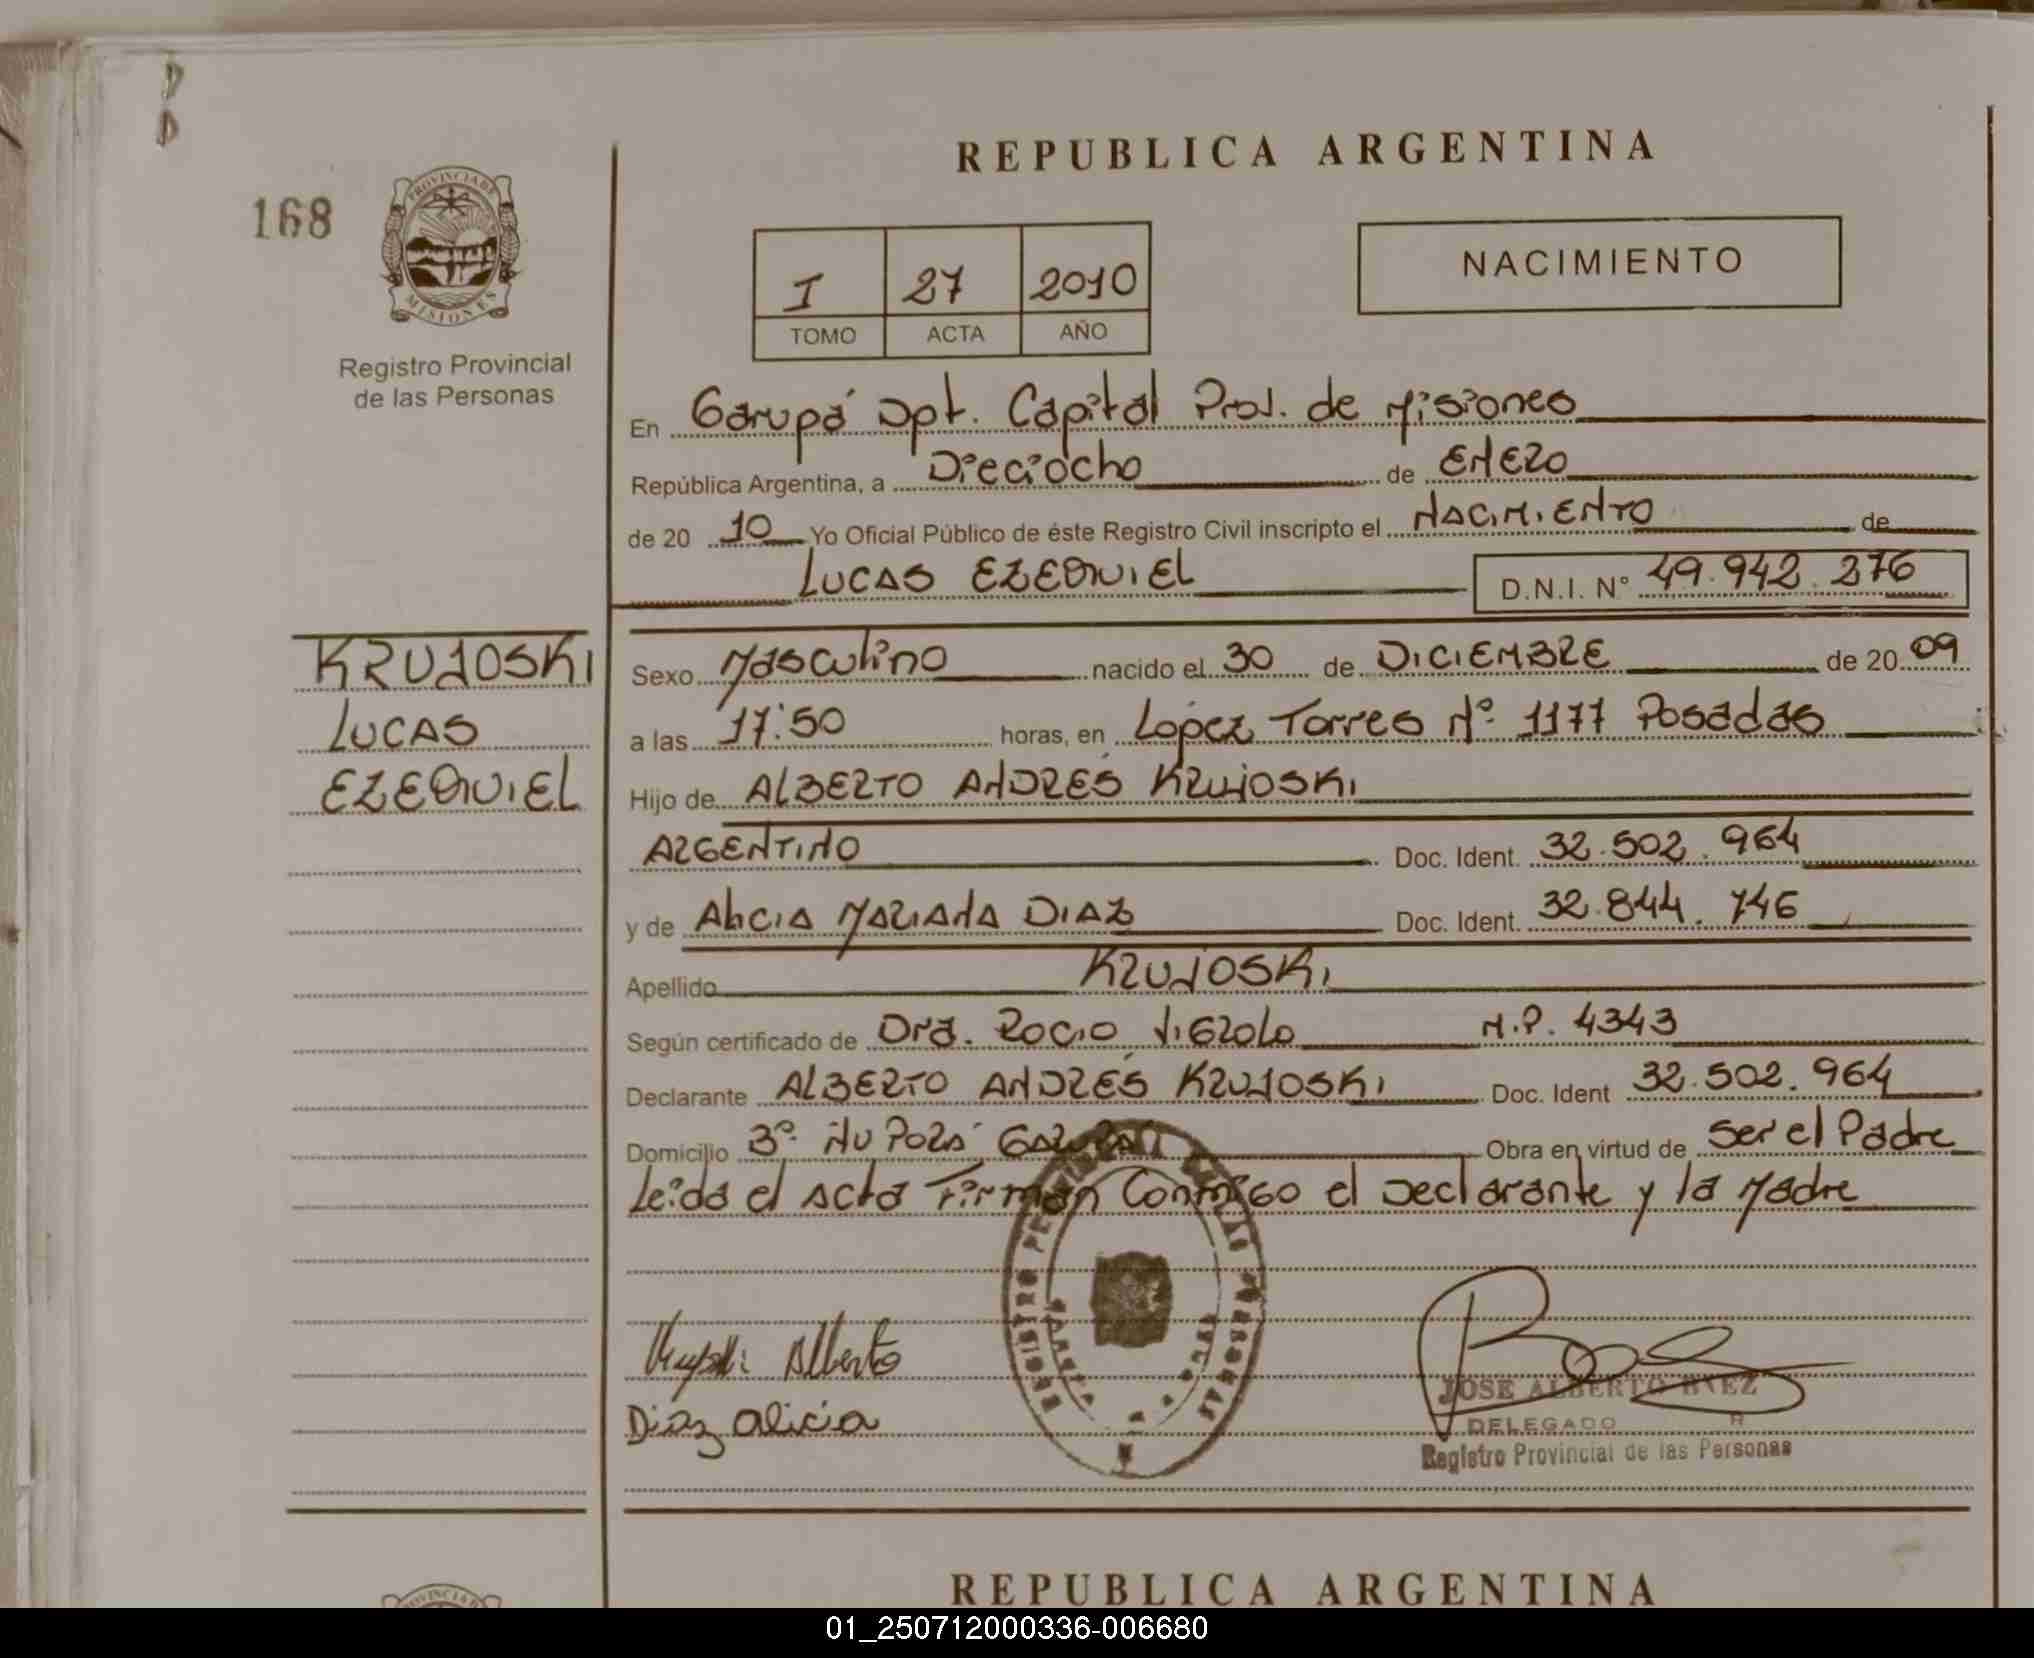 REPUBLICA ARGENTINA
168
PROVINCIA DE
MISIONES
Registro Provincial
de las Personas
I 27 2010
TOMO ACTA AÑO
NACIMIENTO
En Garupá Dpt. Capital Prov. de Misiones
República Argentina, a Dieciocho de ENERO
de 20 10 Yo Oficial Público de éste Registro Civil inscripto el NACIMIENTO de
LUCAS EZEQUIEL D.N.I. N° 49.942.276
KRUJOSKI
LUCAS
EZEQUIEL
Sexo Masculino nacido el 30 de DICIEMBRE de 20 09
a las 17:50 horas, en López Torres Nº 1177 Posadas
Hijo de ALBERTO ANDRÉS KRUJOSKI
ARGENTINO Doc. Ident. 32.502.964
y de Alicia MARIANA DIAZ Doc. Ident. 32.844.746
Apellido KRUJOSKI
Según certificado de Dra. ROCIO VIGROLO M.P. 4343
Declarante ALBERTO ANDRÉS KRUJOSKI Doc. Ident 32.502.964
Domicilio Bº ÑU PORÁ GARUPÁ Obra en virtud de ser el Padre
Leida el Acta Firman Conmigo el Declarante y la Madre
REGISTRO PROVINCIAL DE LAS PERSONAS
Krujoski Alberto
Diaz alicia
JOSE ALBERTO BAEZ
DELEGADO
Registro Provincial de las Personas
REPUBLICA ARGENTINA
PROVINCIA DE
01_250712000336-006680